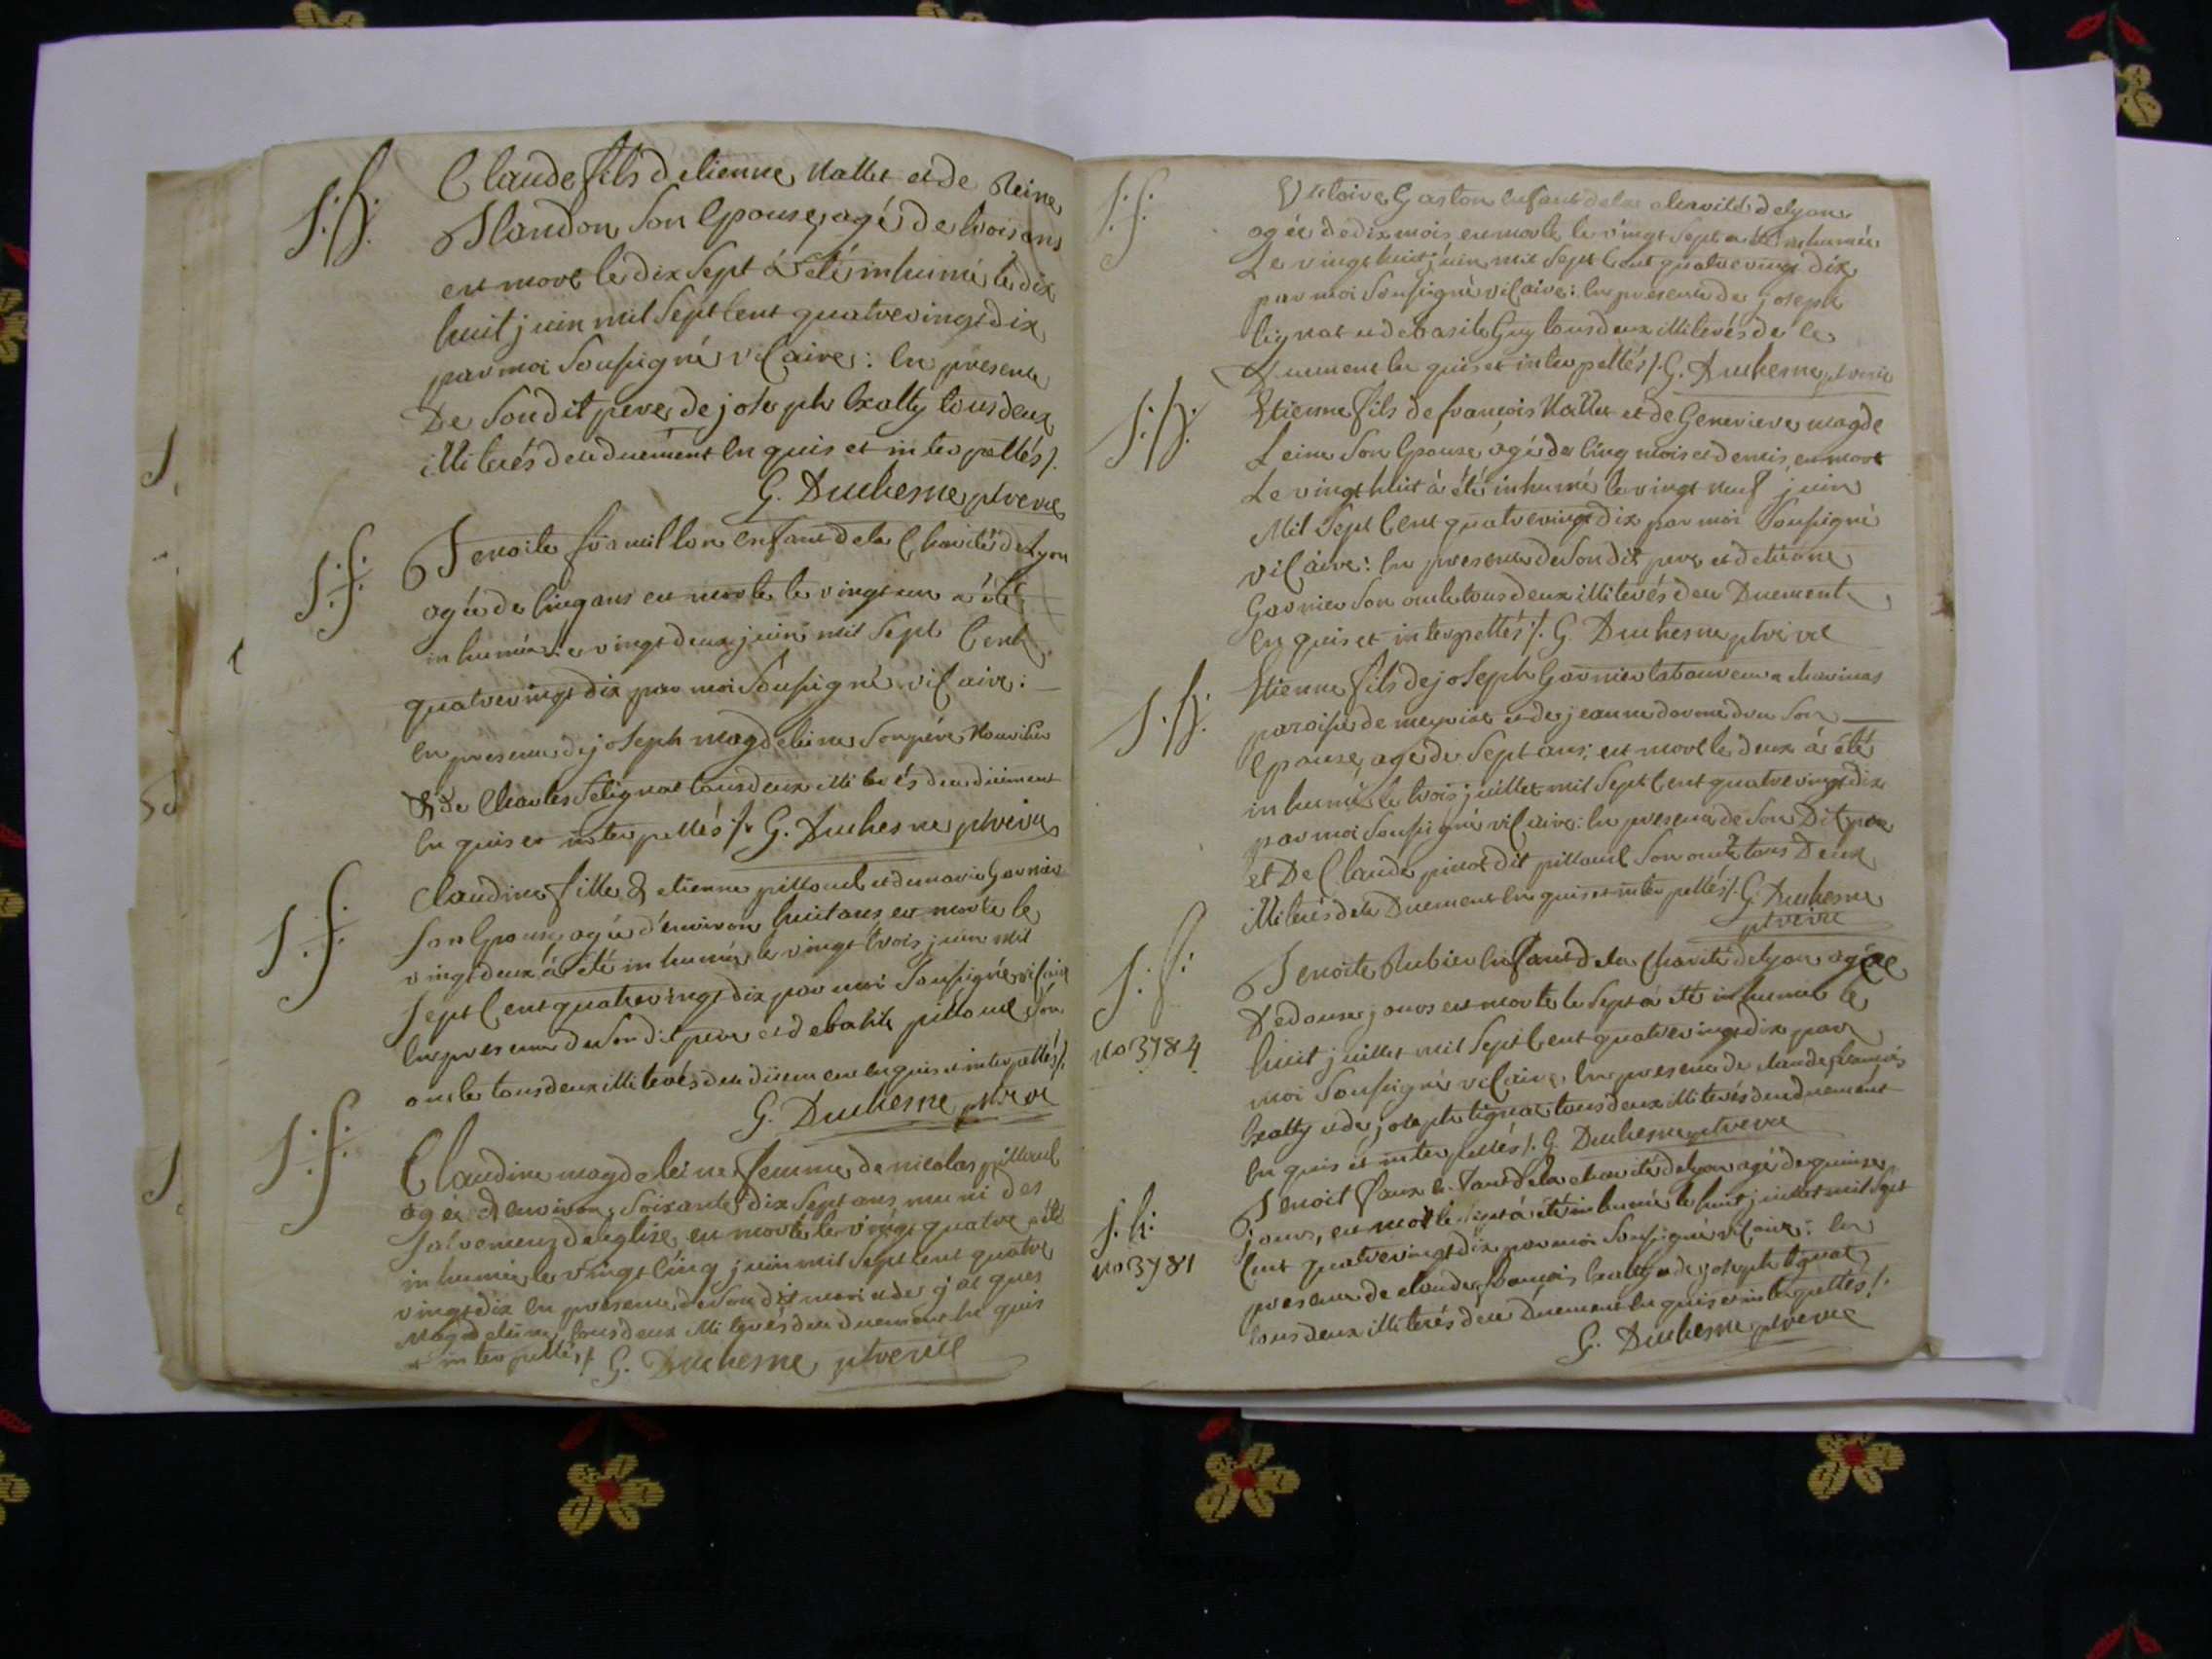 S. h.
Claude fils d'etienne Mallet et de Reine
Blandon Son Epouse, agé de trois ans
est mort le dix Sept á été inhumé le dix
huit juin mil Sept Cent quatre vingt dix
par moi Soussigné vicaire: En presence
De Son dit pere, de joseph Exatty tous deux
illiterés de ce duement En quis et interpellés /.
G. Duchesne ptre vic
S. f.
Benoite enfant de la Charité de Lyon
agée de Cinq ans est morte le vingt un a été
inhumée le vingt deux juin mil Sept Cent
quatre vingt dix par moi Soussigné vicaire:
En presence de joseph magdeleine Son pére Nouricier
& de Charles Tétignat tous deux illiterés de ce düement
En quis et interpellés /. G. Duchesne ptre vic
S. f.
Claudine fille d'etienne pilloud et de marie Garnier
Son Epouse, agée d'environ huit ans est morte le
vingt deux á été inhumée le vingt trois juin mil
Sept Cent quatre vingt dix par moi Soussigné vicaire
En presence de Son dit pere et de basile pilloud Son
oncle tous deux illiterés de ce düement enquis et interpellés /.
G. Duchesne ptre vic
S. f.
Claudine magdeleine femme de nicolas pilloud
agée d'environ Soixante dix Sept ans, muni des
Sacremens de leglise est morte le vingt quatre a été
inhumée le vingt Cinq juin mil Sept Cent quatre
vingt dix En presence de Son dit mari et de jacques
Magdeleine, tous deux illiterés de ce duement En quis
et interpellés /. G. Duchesne, ptre vic
S. f.
Victoire Gaston Enfant de la charité de lyon
agée de dix mois est morte le vingt Sept a été inhumée
Le vingt huit juin mil Sept Cent quatre vingt dix
par moi Soussigné vicaire: En presence de joseph
tignat et de basile Guy tous deux illiterés de ce
Duement En quis et interpellés /. G. Duchesne, ptre vic
S. h.
Etienne fils de francois Mallet et de Genevieve magde
Leine Son Epouse, agé de Cinq mois et demis, est mort
Le vingt huit á été inhumé le vingt neuf juin
Mil Sept Cent quatre vingt dix par moi Soussigné
vicaire: En presence de Son dit pere et d'etienne
Garnier Son oncle tous deux illiterés de ce Duement
En quis et interpellés /. G. Duchesne ptre vic
S. h.
Etienne fils de joseph Garnier laboureur a
paroisse de et de jeanne Son
Epouse, agé de Sept ans; est mort le deux á été
inhumé le trois juillet mil Sept Cent quatre vingt dix
par moi Soussigné vicaire: En presence de Son Dit pere
et De Claude dit pilloud Son oncle tous Deux
illiterés de ce Duement En quis et interpellés /. G. Duchesne
ptre vic
S. f.
No 3784
Benoite Rubier Enfant de la Charité de lyon agée
De douze jours est morte le Sept á été inhumée le
huit juillet mil Sept Cent quatre vingt dix par
moi Soussigné vicaire, En presence de claude francois
Exatty et de joseph tignat tous deux illiterés de ce duement
En quis et interpellés /. G. Duchesne ptre vic
S. h.
No 3781
Benoit Enfant de la charité de lyon agé de quinze
jours, est mort le Sept á été inhumé le huit juillet mil Sept
Cent quatre vingt dix par moi Soussigné vicaire: En
presence de claude francois Exatty et de joseph tignat
tous deux illiterés de ce Duement En quis et interpellés /.
G. Duchesne, ptre vic